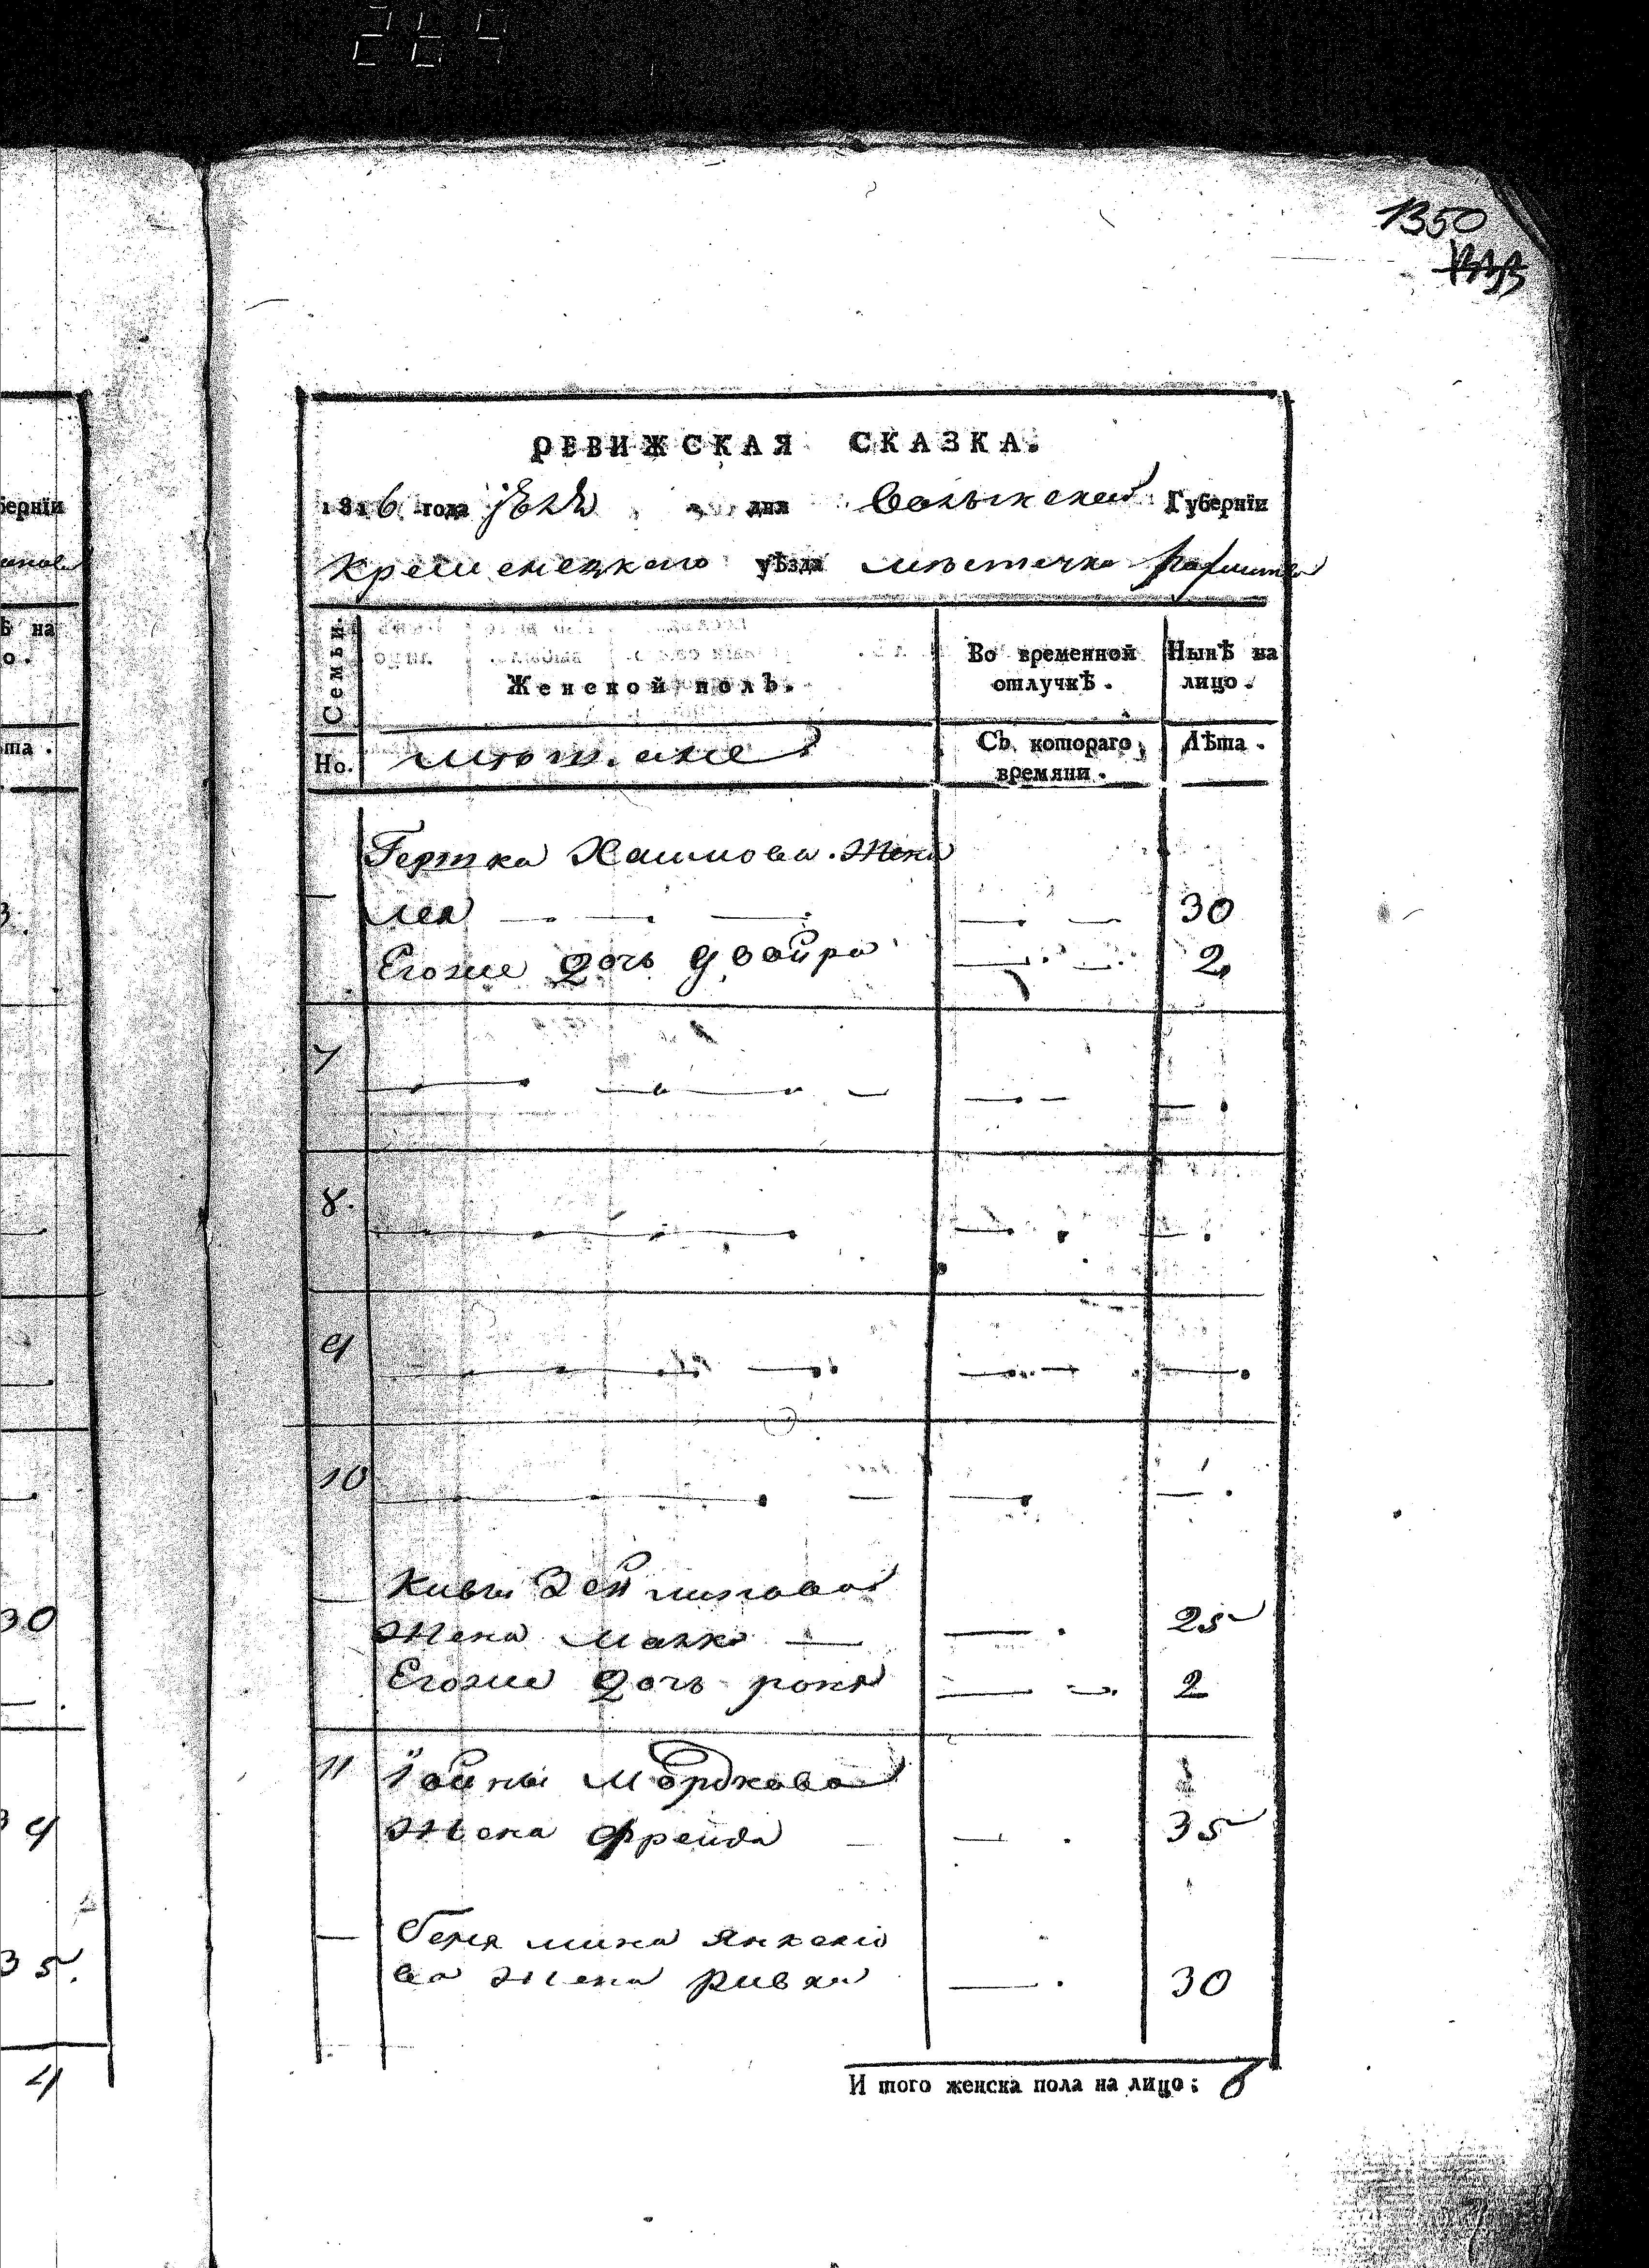 269
1350
РЕВИЖСКАЯ СКАЗКА.
1816 года дня Волынской Губернїи
Кременецкаго уѣзда местечка
Семьи.
Женской полъ.
Во временной отлучкѣ.
Нынѣ на лицо.
Но.
Съ котораго времяни.
Лѣта.
Хаимова жена
Лея 30
Егоже дочь двойра 2
7
8.
9
10
Кивы
Жена Малка 25
Егоже дочь 2
11 Мордкова
Жена Фрейда 35
Бенямина Янкелю
ва жена Ривка 30
И того женска пола на лицо: 6
бернїи
ѣ на
о.
ѣта.
30
35.
4